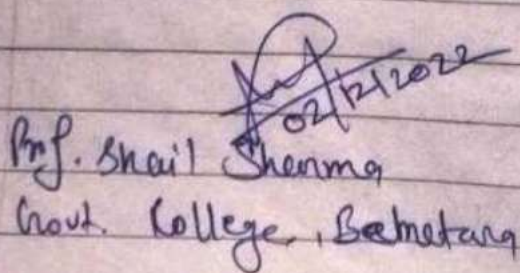 02/12/2022
Prof. Shail Sharma
Govt. College, Bemetara